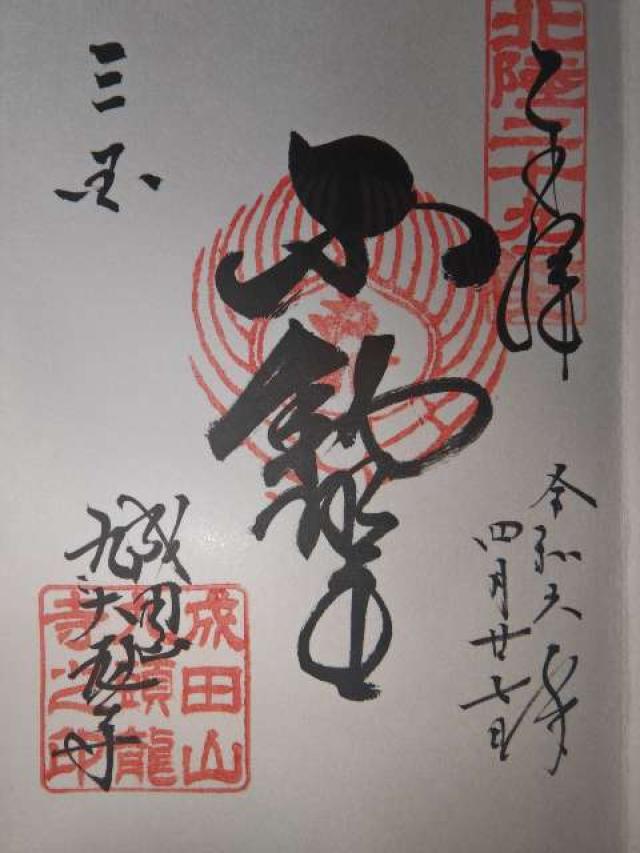 北陸二十九番
奉拝
令和六年
四月廿七日
不動尊
三国
成田山
九頭龍寺
成田山
九頭龍
寺之印